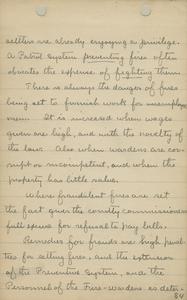 settlers are already enjoying a privilege.
A Patrol System preventing fires often
obviates the expense of fighting them.
There is always the danger of fires
being set to furnish work for unemployed
men. It is increased when wages
given are high, and with the novelty of
the law. Also when wardens are cor-
rupt or incompetent, and when the
property has little value.
Where fraudulent fires are set
the fact gives the county commissioners
full power for refusal to pay bills.
Remedies for frauds are high penal-
ties for setting fires, and the extension
of the Preventive System, and the
Personnel of the Fire-wardens as deter-